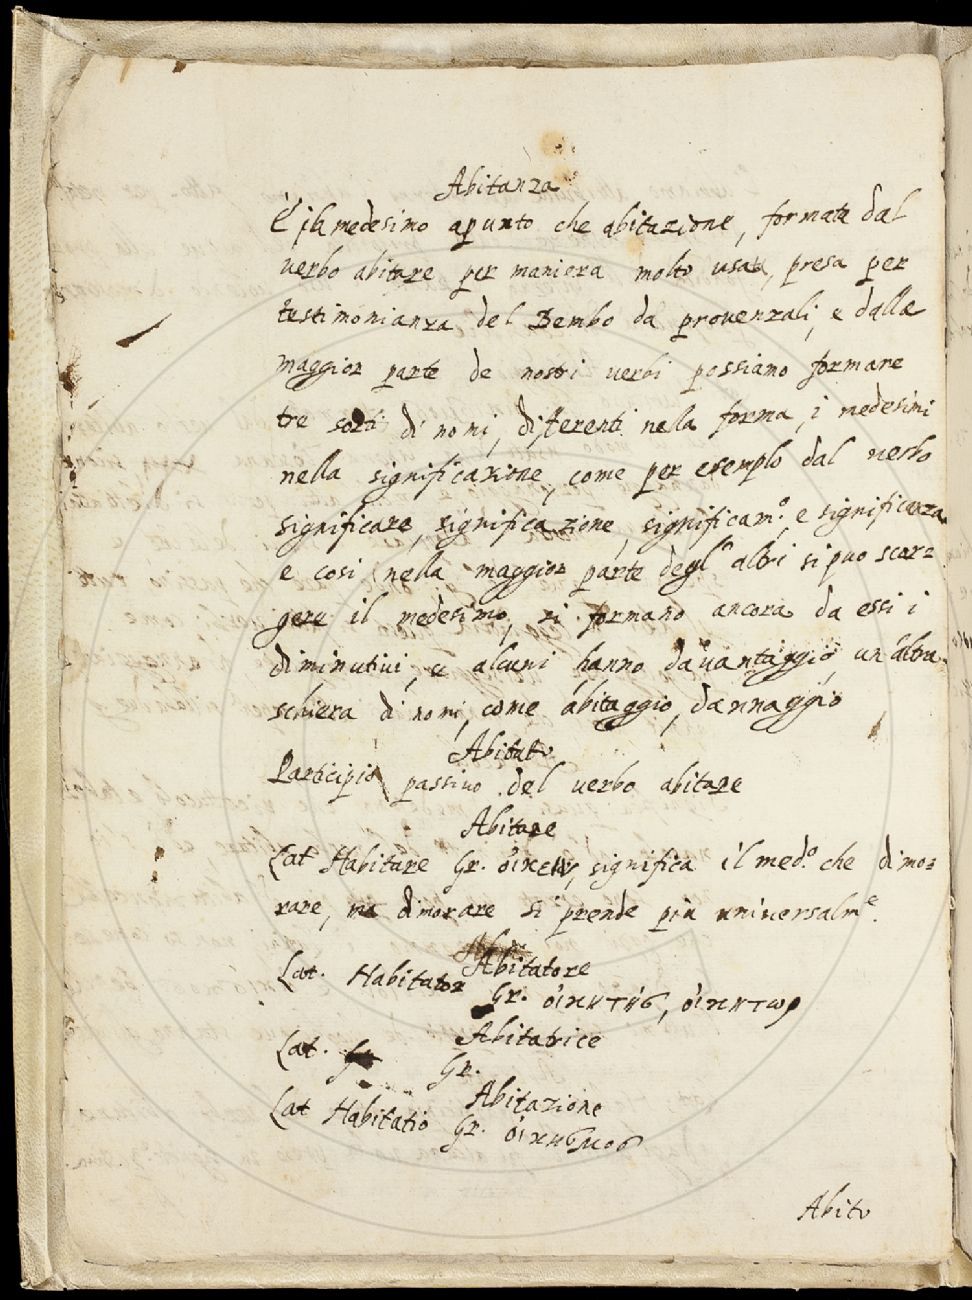 Abitanza
È il medesimo apunto che abitazione, formata dal
verbo abitare per maniera molto usata, presa per
testimonianza del Bembo da prouenzali, e dalla
maggior parte de nostri uerbi possiamo formare
tre sorti di nomi, differenti nella forma, i medesimi
nella significazione, come per esempio dal uerbo
significare, significazione, significam.º, e significanza
e cosi nella maggior parte degl' altri si puo scor=
gere il medesimo, si formano ancora da essi i
diminutiui, e alcuni hanno dauantaggio un'altra
schiera di nomi, come abitaggio, dannaggio
Abitato
Participio passiuo del uerbo abitare
Abitare
Lat Habitare Gr. ὀικειν, significa il med.º che dimo=
rare, ma dimorare si prende più uniuersalm.e
Abitatore
Lat. Habitator Gr. ὀικητὴς, ὀικητωρ
Abitatrice
Lat. Gr.
Abitazione
Lat Habitatio Gr. ὀικησμος
Abito